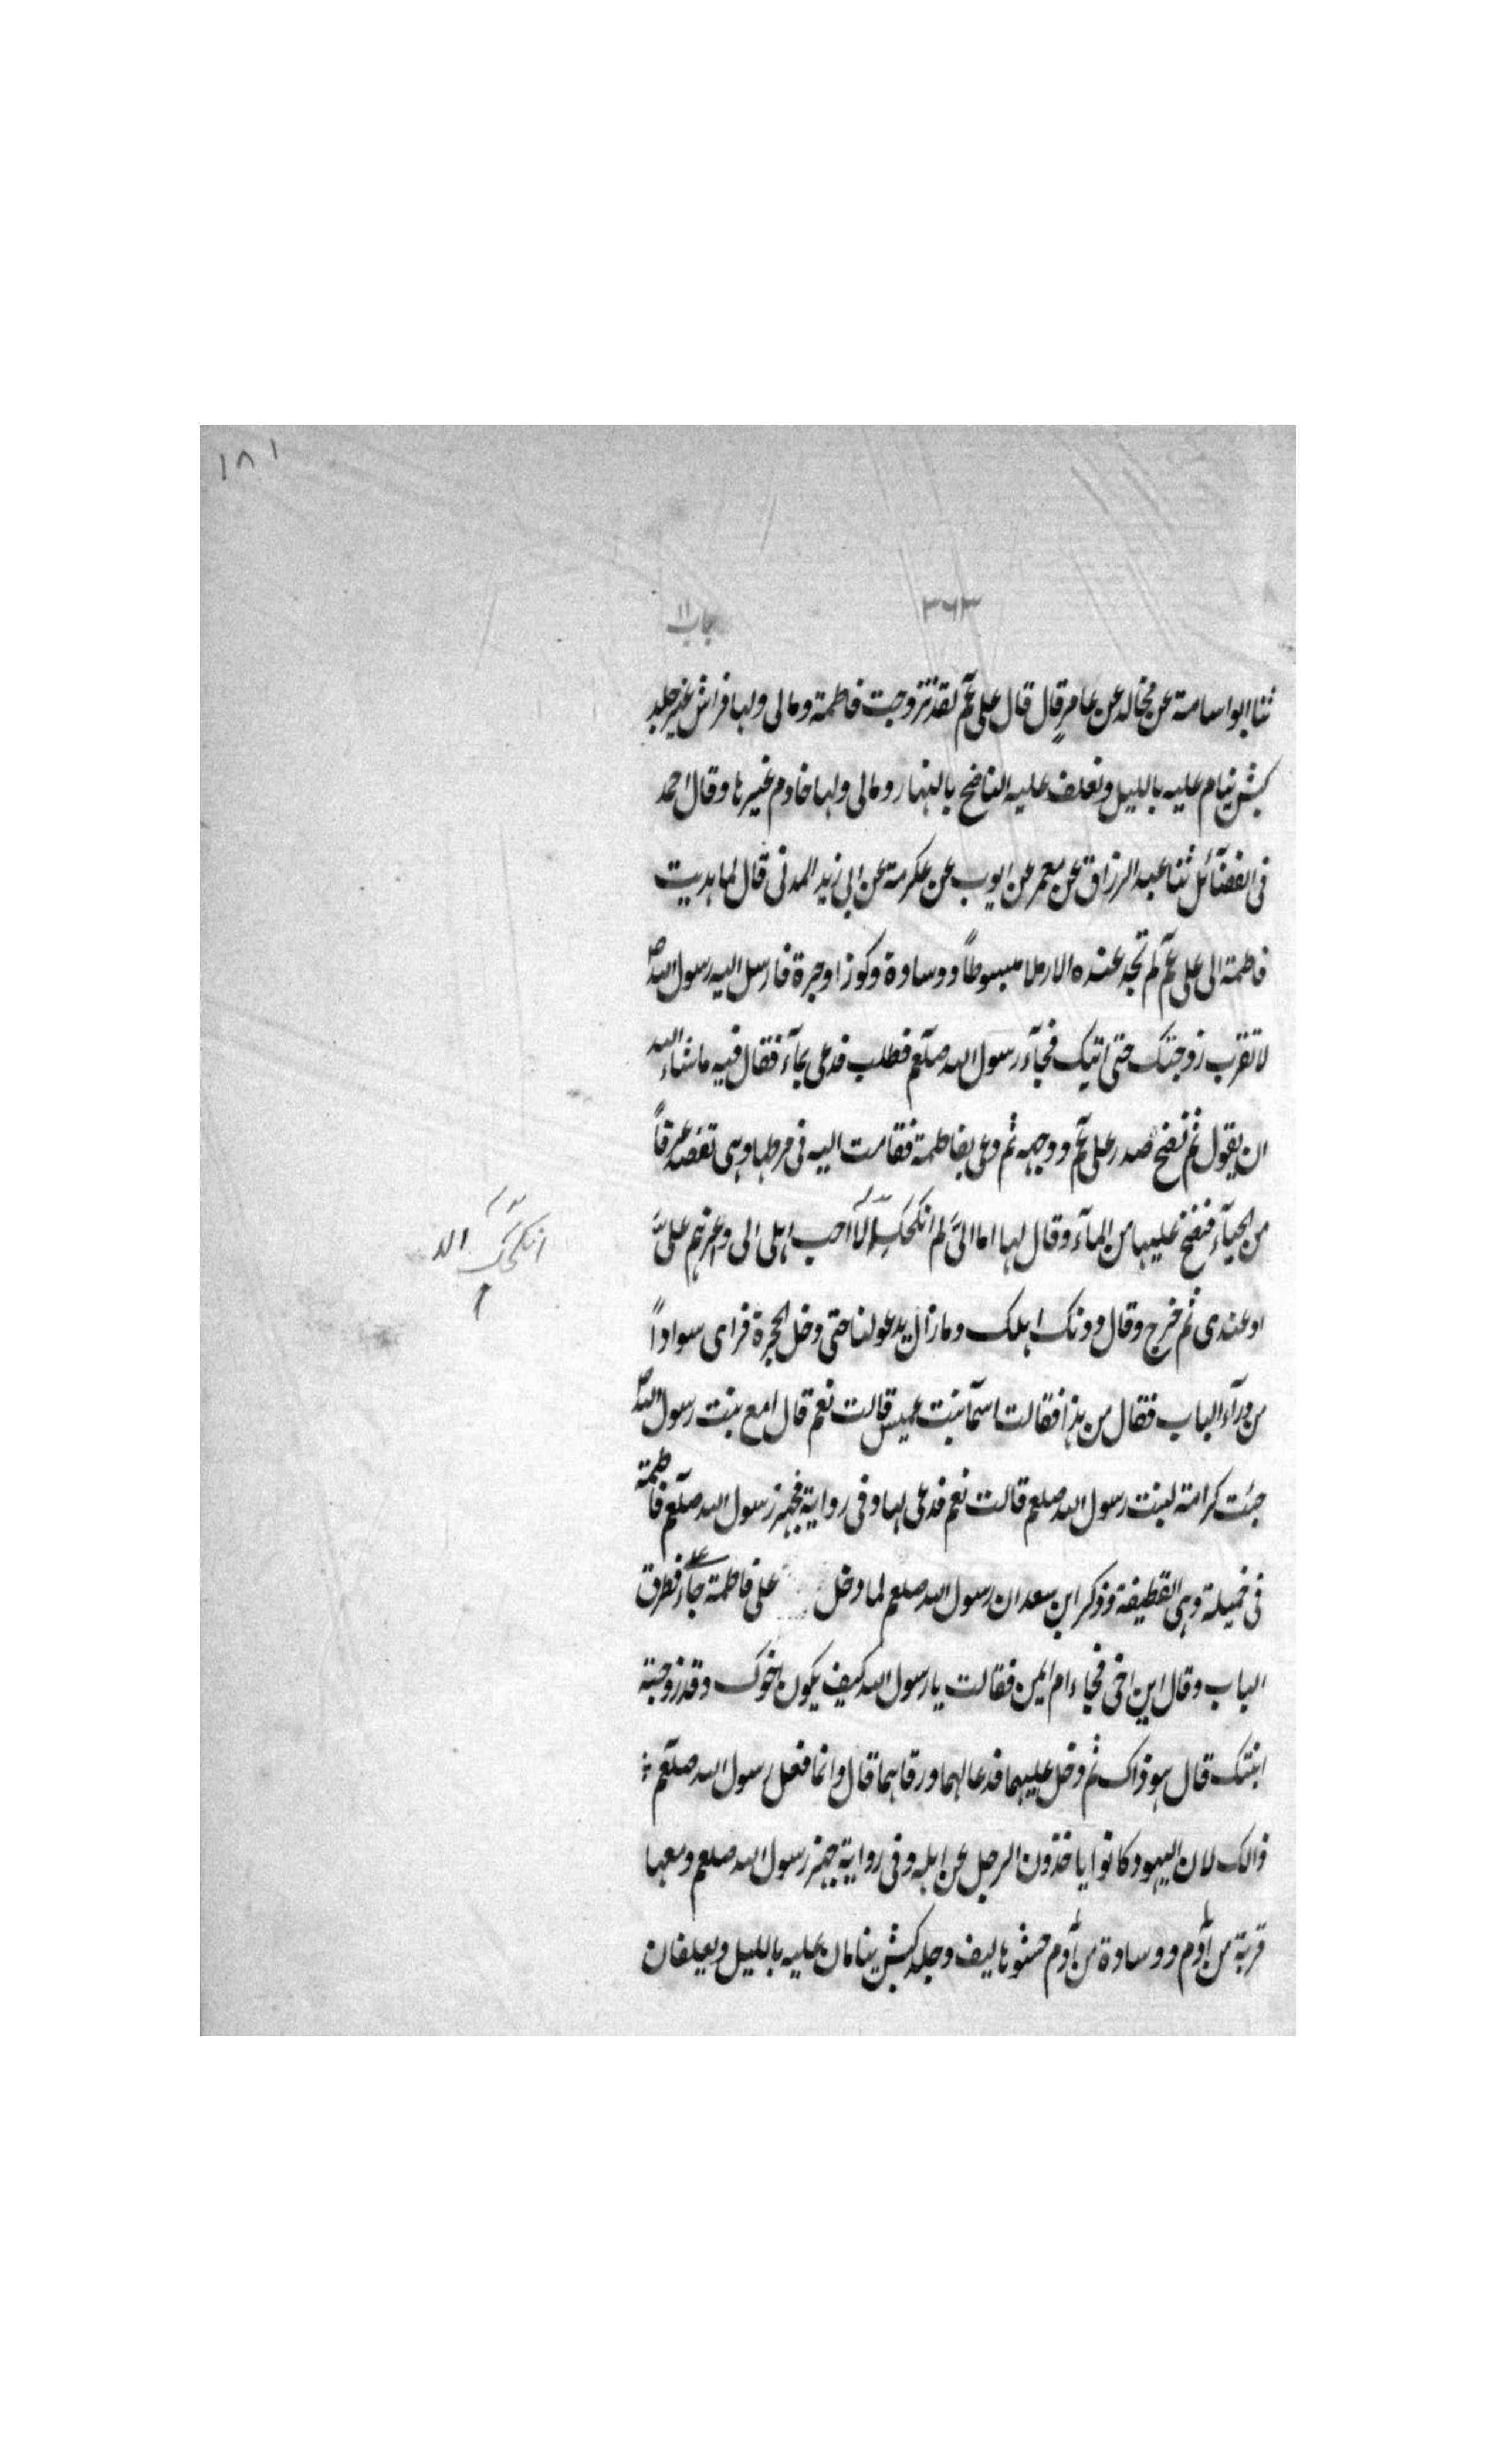 ١٨١
٣٦٣
باب ١١
ثنا ابو اسامة عن مجالد عن عامر قال قال على عم لقد تزوجت فاطمة ومالى ولها فراش غير جلد
كبش ينام عليه بالليل ونعلف عليه الناضح بالنهار ومالى ولها خادم غيرها وقال احمد
فى الفضآئل ثنا عبد الرزاق عن معمر عن ايوب عن عكرمة عن ابى زيد المدنى قال لما هديت
فاطمة الى على عم لم تجد عنده الا رملا مبسوطاً ووسادة وكوزا وجرة فارسل اليه رسول الله ص
لا تقرب زوجتك حتى اتيك فجآء رسول الله صلعم فطلب فدعى بمآء فقال فيه ما شاء الله
ان يقول ثم نضح صدر على عم ووجهه ثم دعى بفاطمة فقامت اليه فى مرطها وهى تغضه عرقاً
من الحيآء فنضح عليها من المآء وقال لها اما انىّ لم انكحك الّا احب اهلى الى واعزهم علىّ
او عندى ثم خرج وقال دونك اهلك وما زال يدعو لنا حتى دخل الحجرة فراى سواداً
من ورآء الباب فقال من هذا فقالت اسمآ بنت عميس قالت نعم قال امع بنت رسول الله ص
جئت كرامة لبنت رسول الله صلعم قالت نعم فدعى لها وفى رواية فجهز رسول الله صلعم فاطمة
فى خميلة وهى القطيفة وذكر ابن سعد ان رسول الله صلعم لما دخل على على فاطمة جآء فطرق
الباب وقال اين اخى فجاء ام ايمن فقالت يا رسول الله كيف يكون اخوك وقد زوجته
ابنتك قال هو ذاك ثم دخل عليهما فدعا لهما ورقاهما قال وانما فعل رسول الله صلعم
ذالك لان اليهود كانوا ياخذون الرجل عن اهله وفى رواية جهز رسول الله صلعم ومعها
قربة من أدم ووسادة من أدم حشوها ليف وجلد كبش ينامان عليه بالليل ويعلفان
انكحك الا